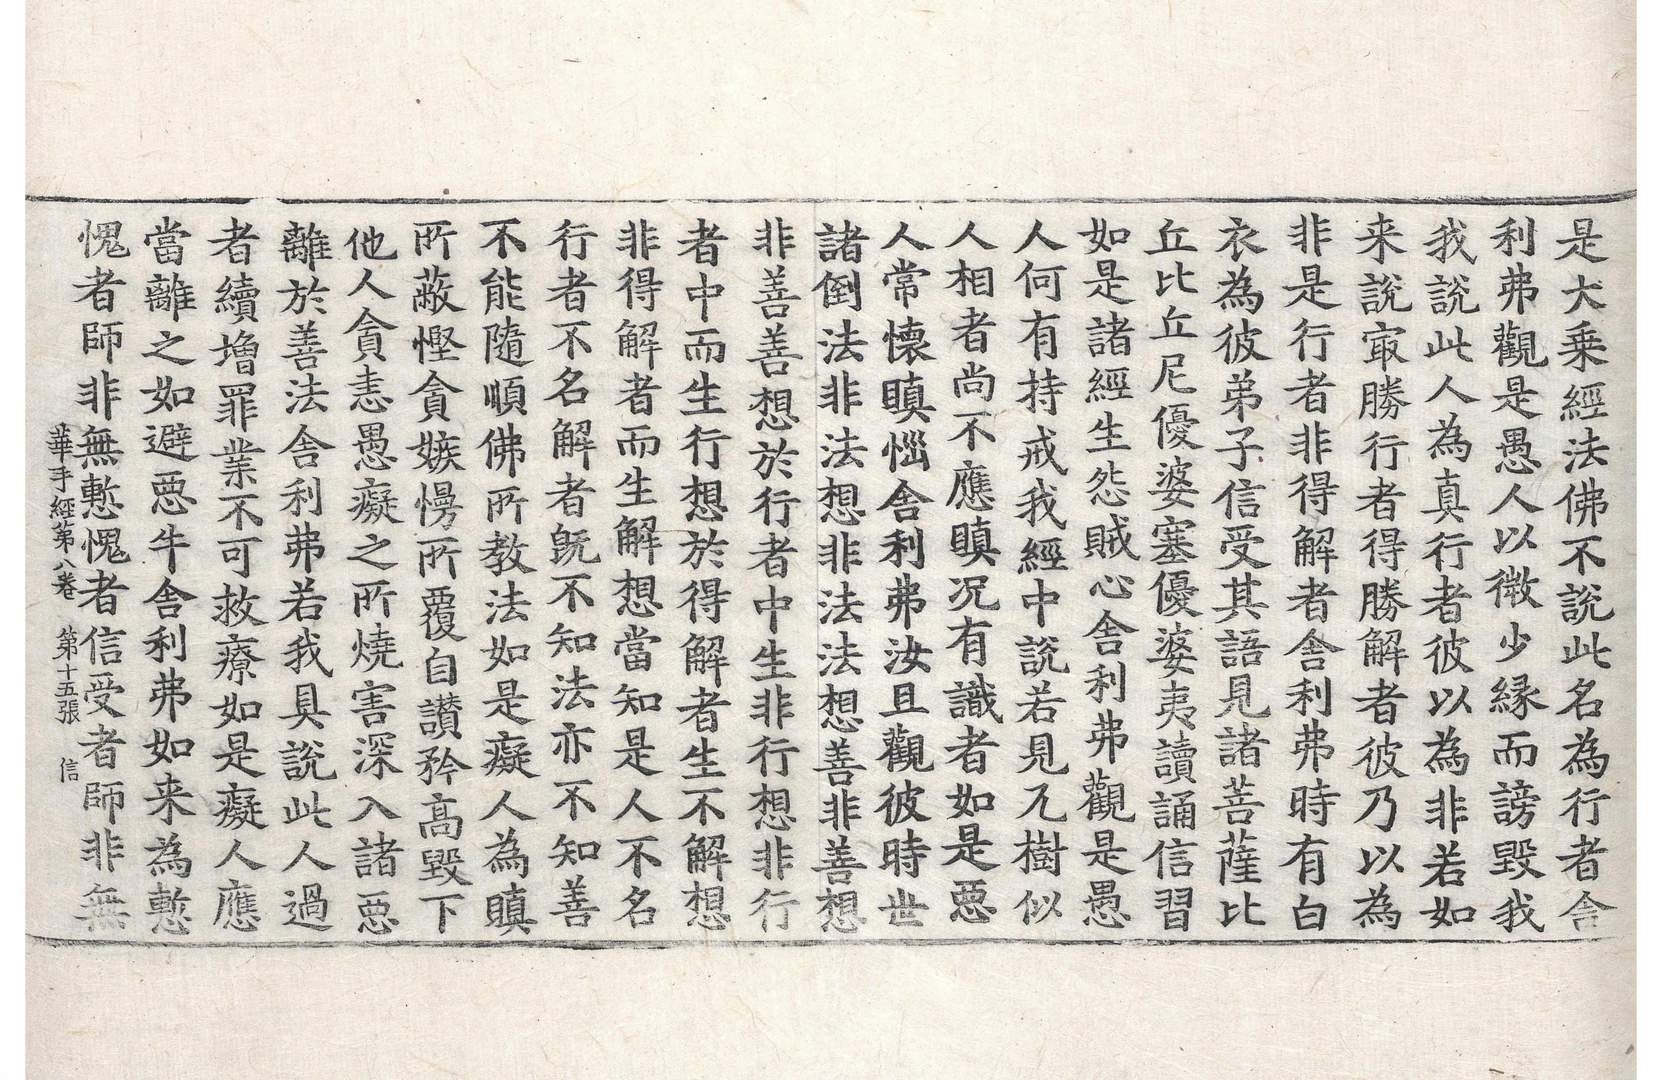 是大乗經法佛不說此名為行者舎
利弗觀是愚人以微少縁而謗毀我
我說此人為真行者彼以為非若如
来說冣勝行者得勝解者彼乃以為
非是行者非得解者舎利弗時有白
衣為彼弟子信受其語見諸菩薩比
丘比丘尼優婆塞優婆夷讀誦信習
如是諸經生怨賊心舎利弗觀是愚
人何有持戒我經中說若見兀樹似
人相者尚不應瞋况有識者如是惡
人常懷瞋惱舎利弗汝且觀彼時世
諸倒法非法想非法法想善非善想
非善善想於行者中生非行想非行
者中而生行想於得解者生不解想
非得解者而生解想當知是人不名
行者不名解者旣不知法亦不知善
不能隨順佛所教法如是癡人為瞋
所蔽慳貪嫉慢所覆自讃矜高毀下
他人貪恚愚癡之所燒害深入諸惡
離於善法舎利弗若我具說此人過
者續增罪業不可救療如是癡人應
當離之如避惡牛舎利弗如来為慙
愧者師非無慙愧者信受者師非無
華手經第八卷　第十五張　信